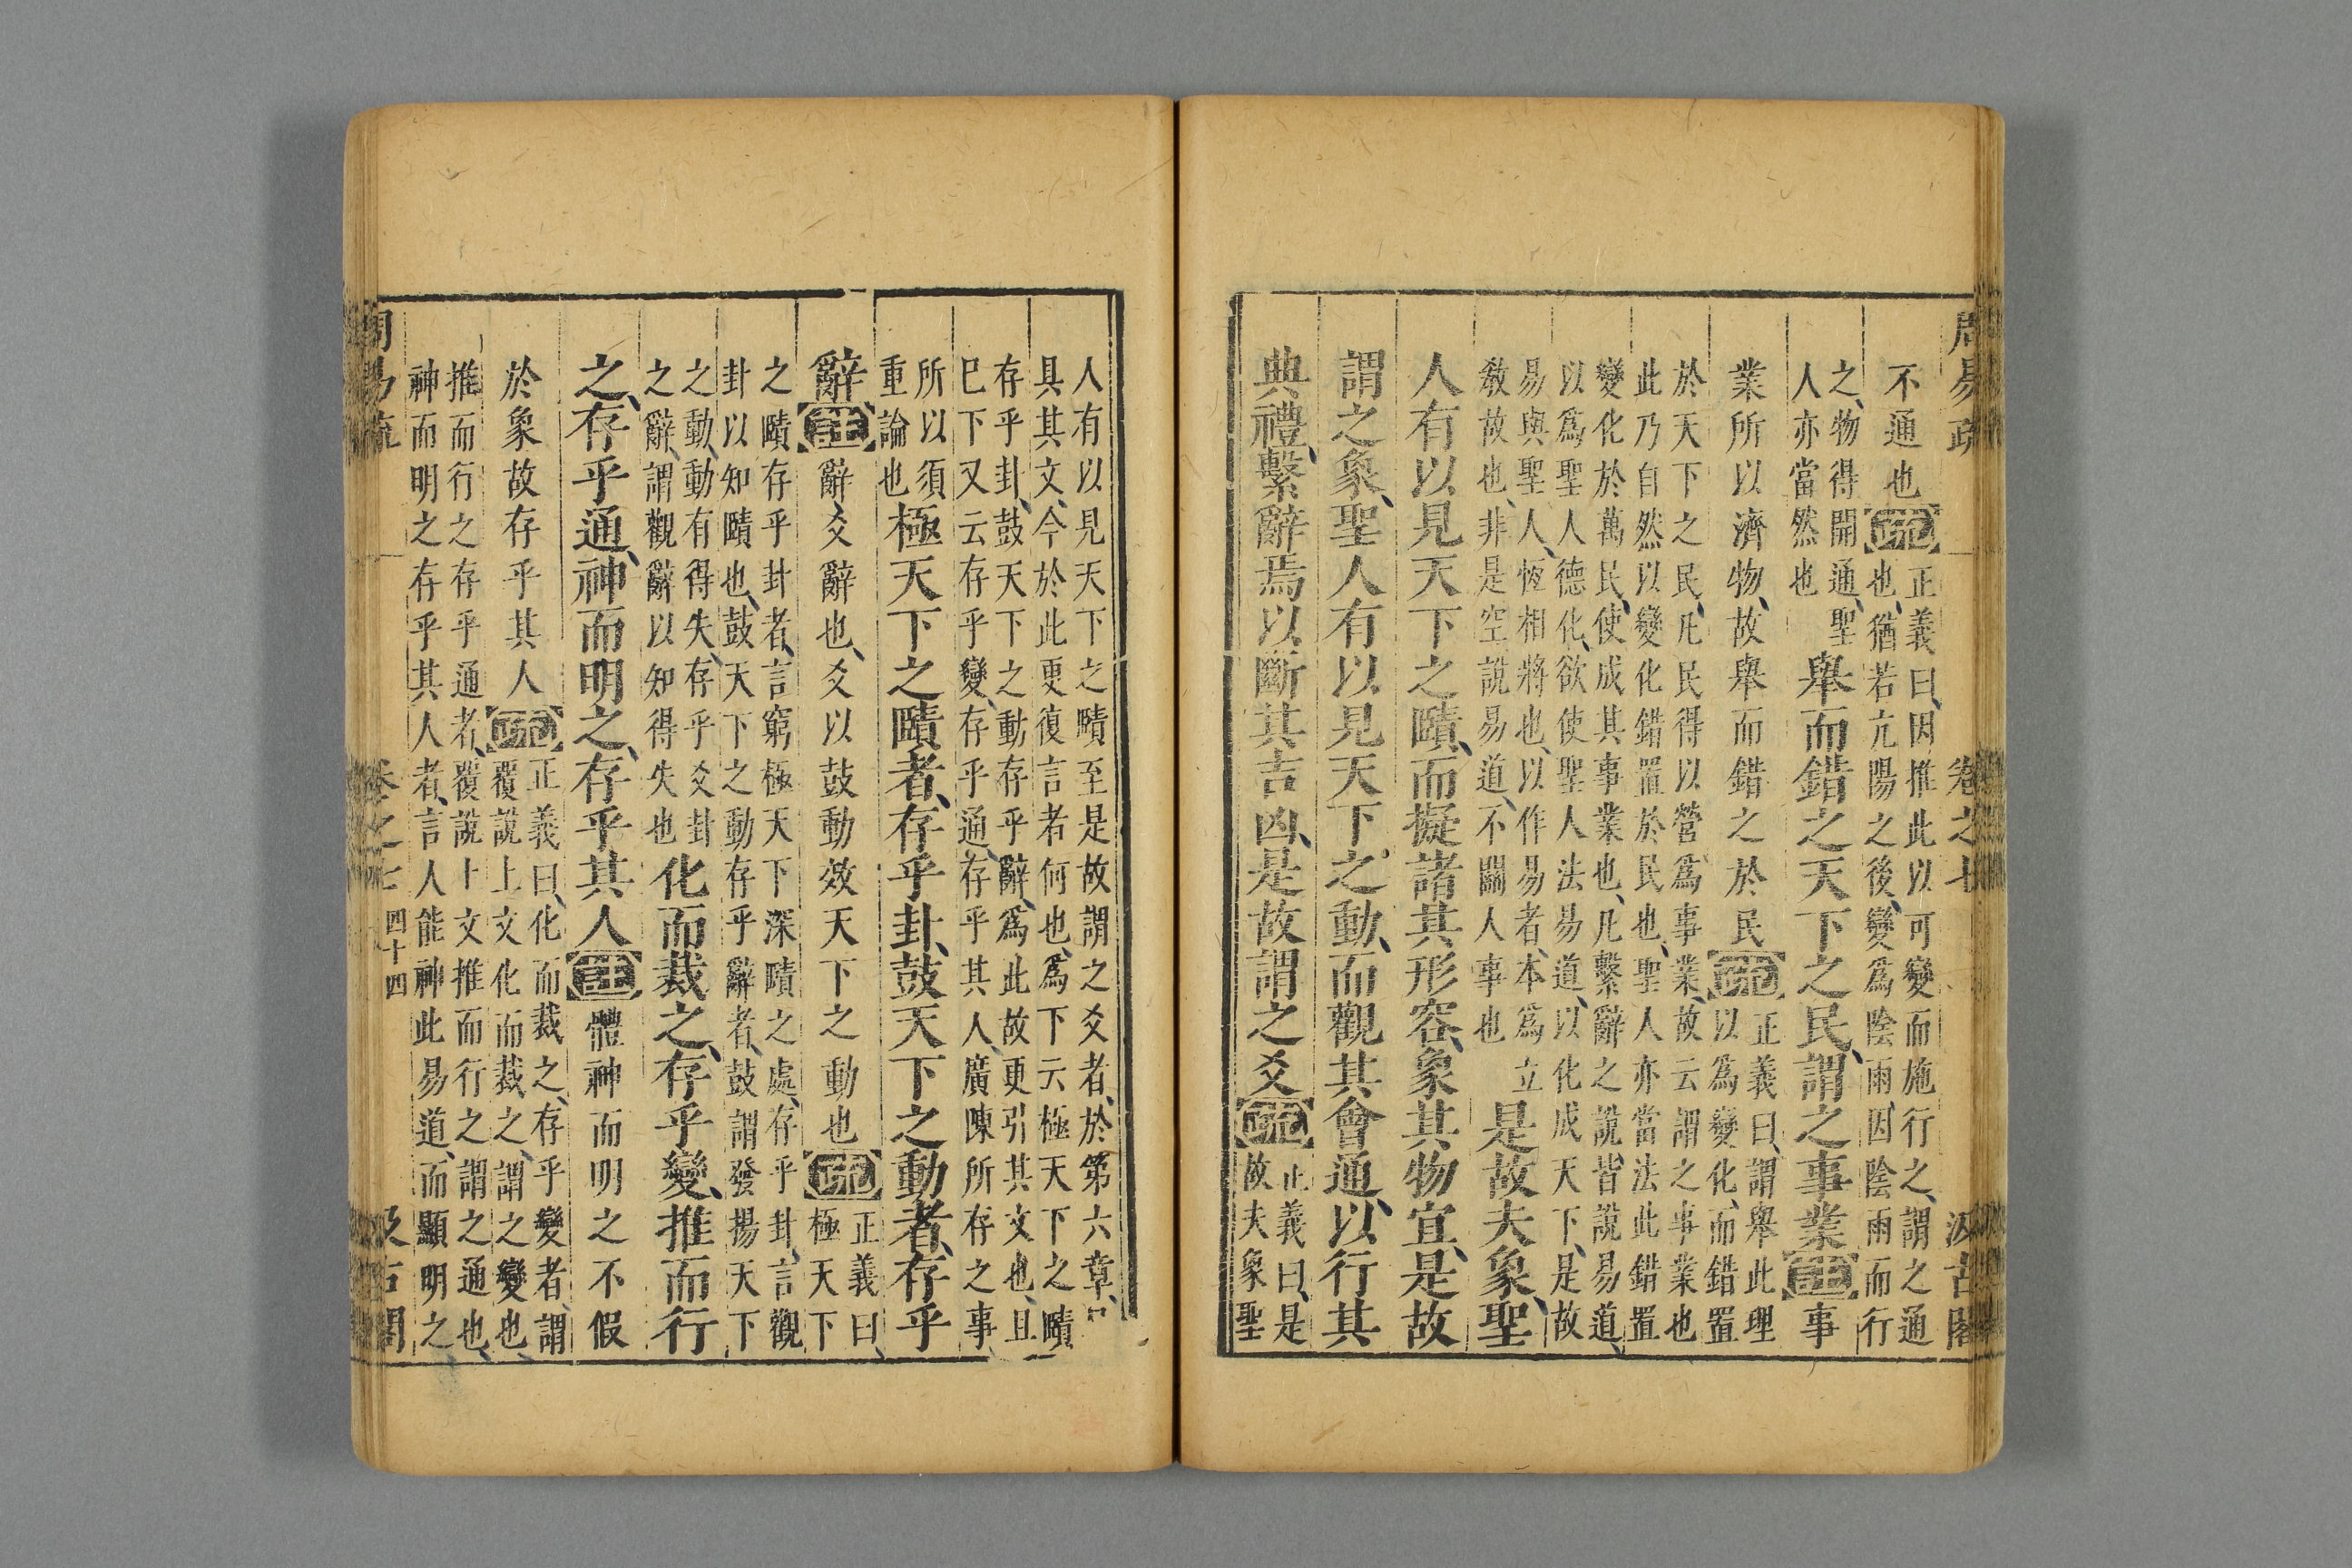 周易疏 卷之七 汲古閣
不通也疏正義曰、因推此以可變而施行之、謂之通
也、猶若亢陽之後、變爲陰雨、因陰雨而行
之、物得開通、聖
人亦當然也
舉而錯之天下之民、謂之事業註事
業所以濟物、故舉而錯之於民疏正義曰、謂舉此理
以爲變化、而錯置
於天下之民、凡民得以營爲事業、故云謂之事業也
此乃自然以變化錯置於民也、聖人亦當法此錯置
變化於萬民、使成其事業也、凡繫辭之說、皆說易道、
以爲聖人德化、欲使聖人法易道、以化成天下、是故
易與聖人、恆相將也、以作易者、本爲立
敎故也、非是空說易道、不關人事也
是故夫象、聖
人有以見天下之賾、而擬諸其形容、象其物宜、是故
謂之象、聖人有以見天下之動、而觀其會通、以行其
典禮、繫辭焉以斷其吉凶、是故謂之爻疏正義曰、是
故夫象聖
人有以見天下之賾至是故謂之爻者、於第六章、
具其文、今於此更復言者何也、爲下云極天下之賾
存乎卦、鼓天下之動存乎辭、爲此故更引其文也、且
已下又云存乎變、存乎通、存乎其人、廣陳所存之事、
所以須
重論也
極天下之賾者、存乎卦、鼓天下之動者、存乎
辭註辭、爻辭也、爻以鼓動效天下之動也疏正義曰、
極天下
之賾存乎卦者、言窮極天下深賾之處、存乎卦、言觀
卦以知賾也、鼓天下之動存乎辭者、鼓謂發揚天下
之動、動有得失、存乎爻卦
之辭、謂觀辭以知得失也
化而裁之、存乎變、推而行
之、存乎通、神而明之、存乎其人註體神而明之不假
於象故存乎其人疏正義曰、化而裁之、存乎變者、謂
覆說上文化而裁之、謂之變也、
推而行之存乎通者、覆說上文推而行之謂之通也、
神而明之存乎其人者、言人能神此易道、而顯明之
周易疏 卷之七 四十四 汲古閣